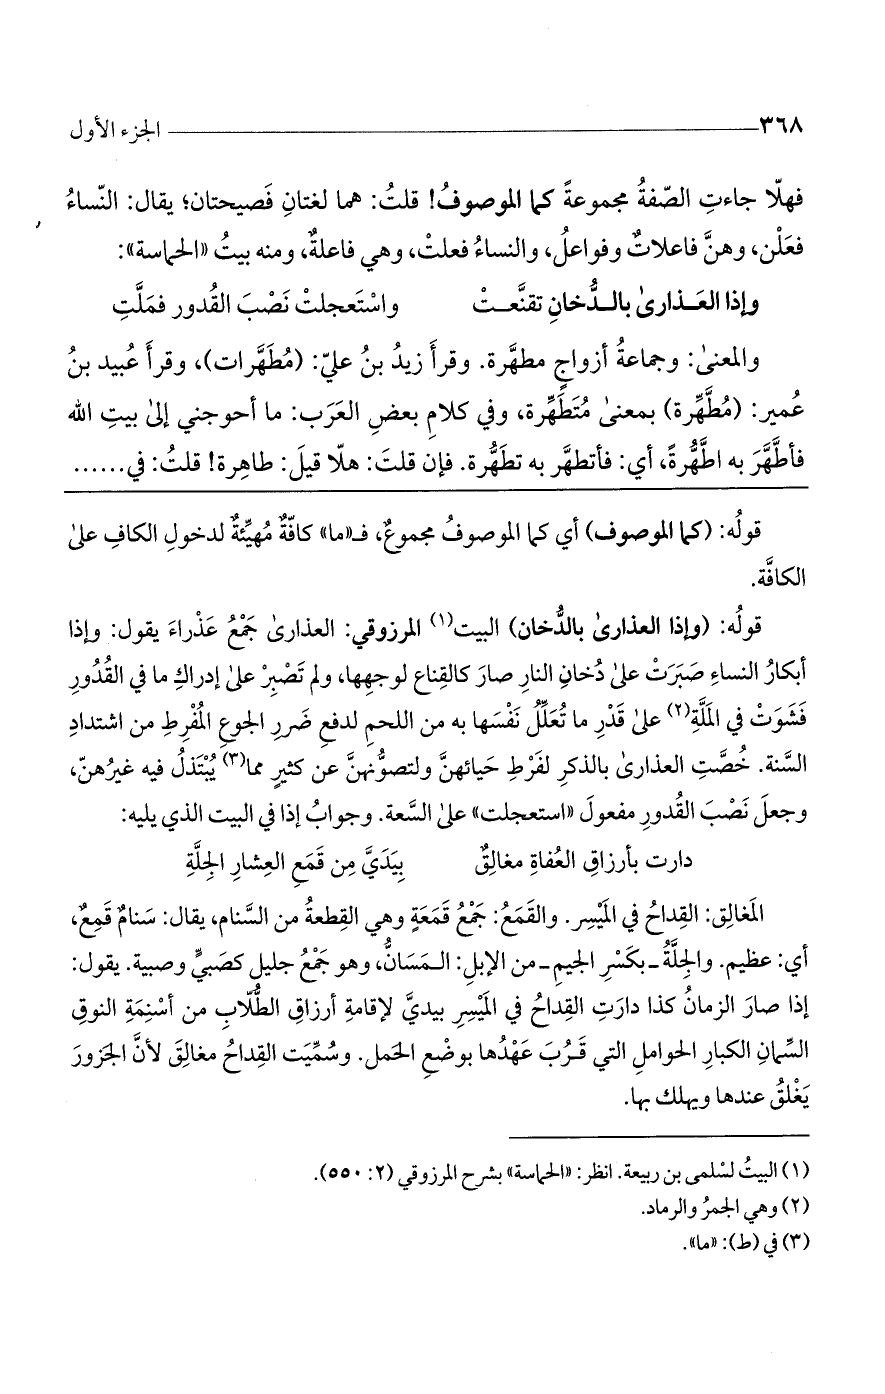 ٣٦٨ الجزء الأول
فهلّا جاءتِ الصّفةُ مجموعةً كما الموصوفُ! قلتُ: هما لغتانِ فَصيحتان؛ يقال: النّساءُ
فعَلْن، وهنَّ فاعلاتٌ وفواعلُ، والنساءُ فعلتْ، وهي فاعلةٌ، ومنه بيتُ «الحماسة»:
وإذا العَـذارىٰ بالـدُّخانِ تقنَّعـتْ واسْتَعجلتْ نَصْبَ القُدور فمَلَّتِ
والمعنىٰ: وجماعةُ أزواجٍ مطهَّرة. وقرأَ زيدُ بنُ عليّ: (مُطَهَّرات)، وقرأَ عُبيد بنُ
عُمير: (مُطَّهِّرة) بمعنىٰ مُتَطَهِّرة، وفي كلامِ بعضِ العَرَب: ما أحوجني إلىٰ بيتِ الله
فأطَّهَّرَ به اطَّهُّرةً، أي: فأتطهَّر به تطَهُّرة. فإن قلتَ: هلّا قيلَ: طاهِرة! قلتُ: في......
قولُه: (كما الموصوف) أي كما الموصوفُ مجموعٌ، فـ«ما» كافّةٌ مُهيِّئةٌ لدخولِ الكافِ علىٰ
الكافَّة.
قولُه: (وإذا العذارىٰ بالدُّخان) البيت(١) المرزوقي: العذارىٰ جَمْعُ عَذْراءَ يقول: وإذا
أبكارُ النساءِ صَبَرَتْ علىٰ دُخانِ النارِ صارَ كالقِناع لوجهِها، ولم تَصْبِرْ علىٰ إدراكِ ما في القُدُورِ
فَشَوَتْ في المَلَّةِ(٢) علىٰ قَدْرِ ما تُعَلِّلُ نَفْسَها به من اللحمِ لدفعِ ضَررِ الجوعِ المُفْرِطِ من اشتدادِ
السَّنة. خُصَّتِ العذارىٰ بالذكرِ لفَرْطِ حَيائهنَّ ولتصوُّنهنَّ عن كثيرٍ مما(٣) يُبْتَذلُ فيه غيرُهنّ،
وجعلَ نَصْبَ القُدورِ مفعولَ «استعجلت» علىٰ السَّعة. وجوابُ إذا في البيت الذي يليه:
دارت بأرزاقِ العُفاةِ مغالِقٌ بِيَدَيَّ مِن قَمَعِ العِشارِ الجِلَّةِ
المَغالِق: القِداحُ في المَيْسِر. والقَمَعُ: جَمْعُ قَمَعَةٍ وهي القِطعةُ من السَّنام، يقال: سَنامٌ قَمِعٌ،
أي: عظيم. والجِلَّةُ ـ بكَسْرِ الجيمِ ـ من الإبلِ: المَسَانُّ، وهو جَمْعُ جليلٍ كصَبيٍّ وصبية. يقول:
إذا صارَ الزمانُ كذا دارَتِ القِداحُ في المَيْسِرِ بيديَّ لإقامةِ أرزاقِ الطُّلَّابِ من أسْنِمَةِ النوقِ
السِّمانِ الكبارِ الحواملِ التي قَـرُبَ عَهْدُها بوضْعِ الحَمل. وسُمِّيَت القِداحُ مغالقَ لأنَّ الجَزورَ
يَغْلقُ عندها ويهلك بها.
(١) البيتُ لسْلمى بن ربيعة. انظر: «الحماسة» بشرح المرزوقي (٢: ٥٥٠).
(٢) وهي الجمرُ والرماد.
(٣) في (ط): «ما».